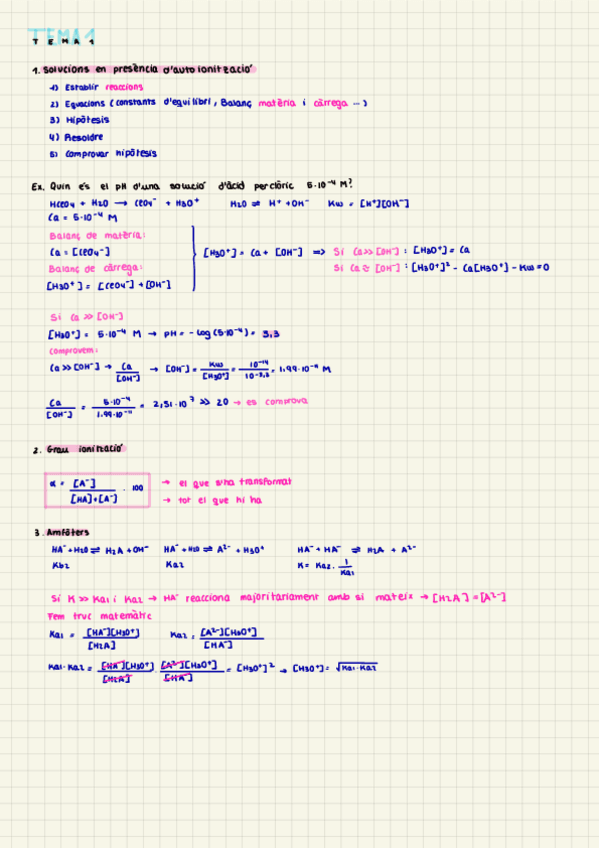 TEMA 1
TEMA 1
1. Solucions en presència d'auto ionització
1) Establir reaccions
2) Equacions (constants d'equilibri, Balanç matèria i càrrega ...)
3) Hipòtesis
4) Resoldre
5) Comprovar hipòtesis
Ex. Quin és el pH d'una solució d'àcid perclòric 5·10⁻⁴ M?
HClO₄ + H₂O → ClO₄⁻ + H₃O⁺ H₂O ⇌ H⁺ + OH⁻ Kw = [H⁺][OH⁻]
Ca = 5·10⁻⁴ M
Balanç de matèria:
Ca = [ClO₄⁻]
Balanç de càrrega:
[H₃O⁺] = [ClO₄⁻] + [OH⁻]
[H₃O⁺] = Ca + [OH⁻] => Si Ca >> [OH⁻] : [H₃O⁺] = Ca
Si Ca ≈ [OH⁻] : [H₃O⁺]² - Ca[H₃O⁺] - Kw = 0
Si Ca >> [OH⁻]
[H₃O⁺] = 5·10⁻⁴ M → pH = -log(5·10⁻⁴) = 3,3
Comprovem:
Ca >> [OH⁻] → Ca/[OH⁻] → [OH⁻] = Kw/[H₃O⁺] = 10⁻¹⁴/10⁻³·³ = 1,99·10⁻¹¹ M
Ca/[OH⁻] = 5·10⁻⁴/1,99·10⁻¹¹ = 2,51·10⁷ >> 20 → es comprova
2. Grau ionització
α = [A⁻]/([HA]+[A⁻]) · 100
→ el que s'ha transformat
→ tot el que hi ha
3. Amfòters
HA⁻ + H₂O ⇌ H₂A + OH⁻ HA⁻ + H₂O ⇌ A²⁻ + H₃O⁺ HA⁻ + HA⁻ ⇌ H₂A + A²⁻
Kb₂ Ka₂ K = Ka₂ · 1/Ka₁
Si K >> Ka₁ i Ka₂ → HA⁻ reacciona majoritàriament amb si mateix → [H₂A] = [A²⁻]
Fem truc matemàtic
Ka₁ = [HA⁻][H₃O⁺]/[H₂A] Ka₂ = [A²⁻][H₃O⁺]/[HA⁻]
Ka₁·Ka₂ = [HA⁻][H₃O⁺]/[H₂A] · [A²⁻][H₃O⁺]/[HA⁻] = [H₃O⁺]² → [H₃O⁺] = √Ka₁·Ka₂